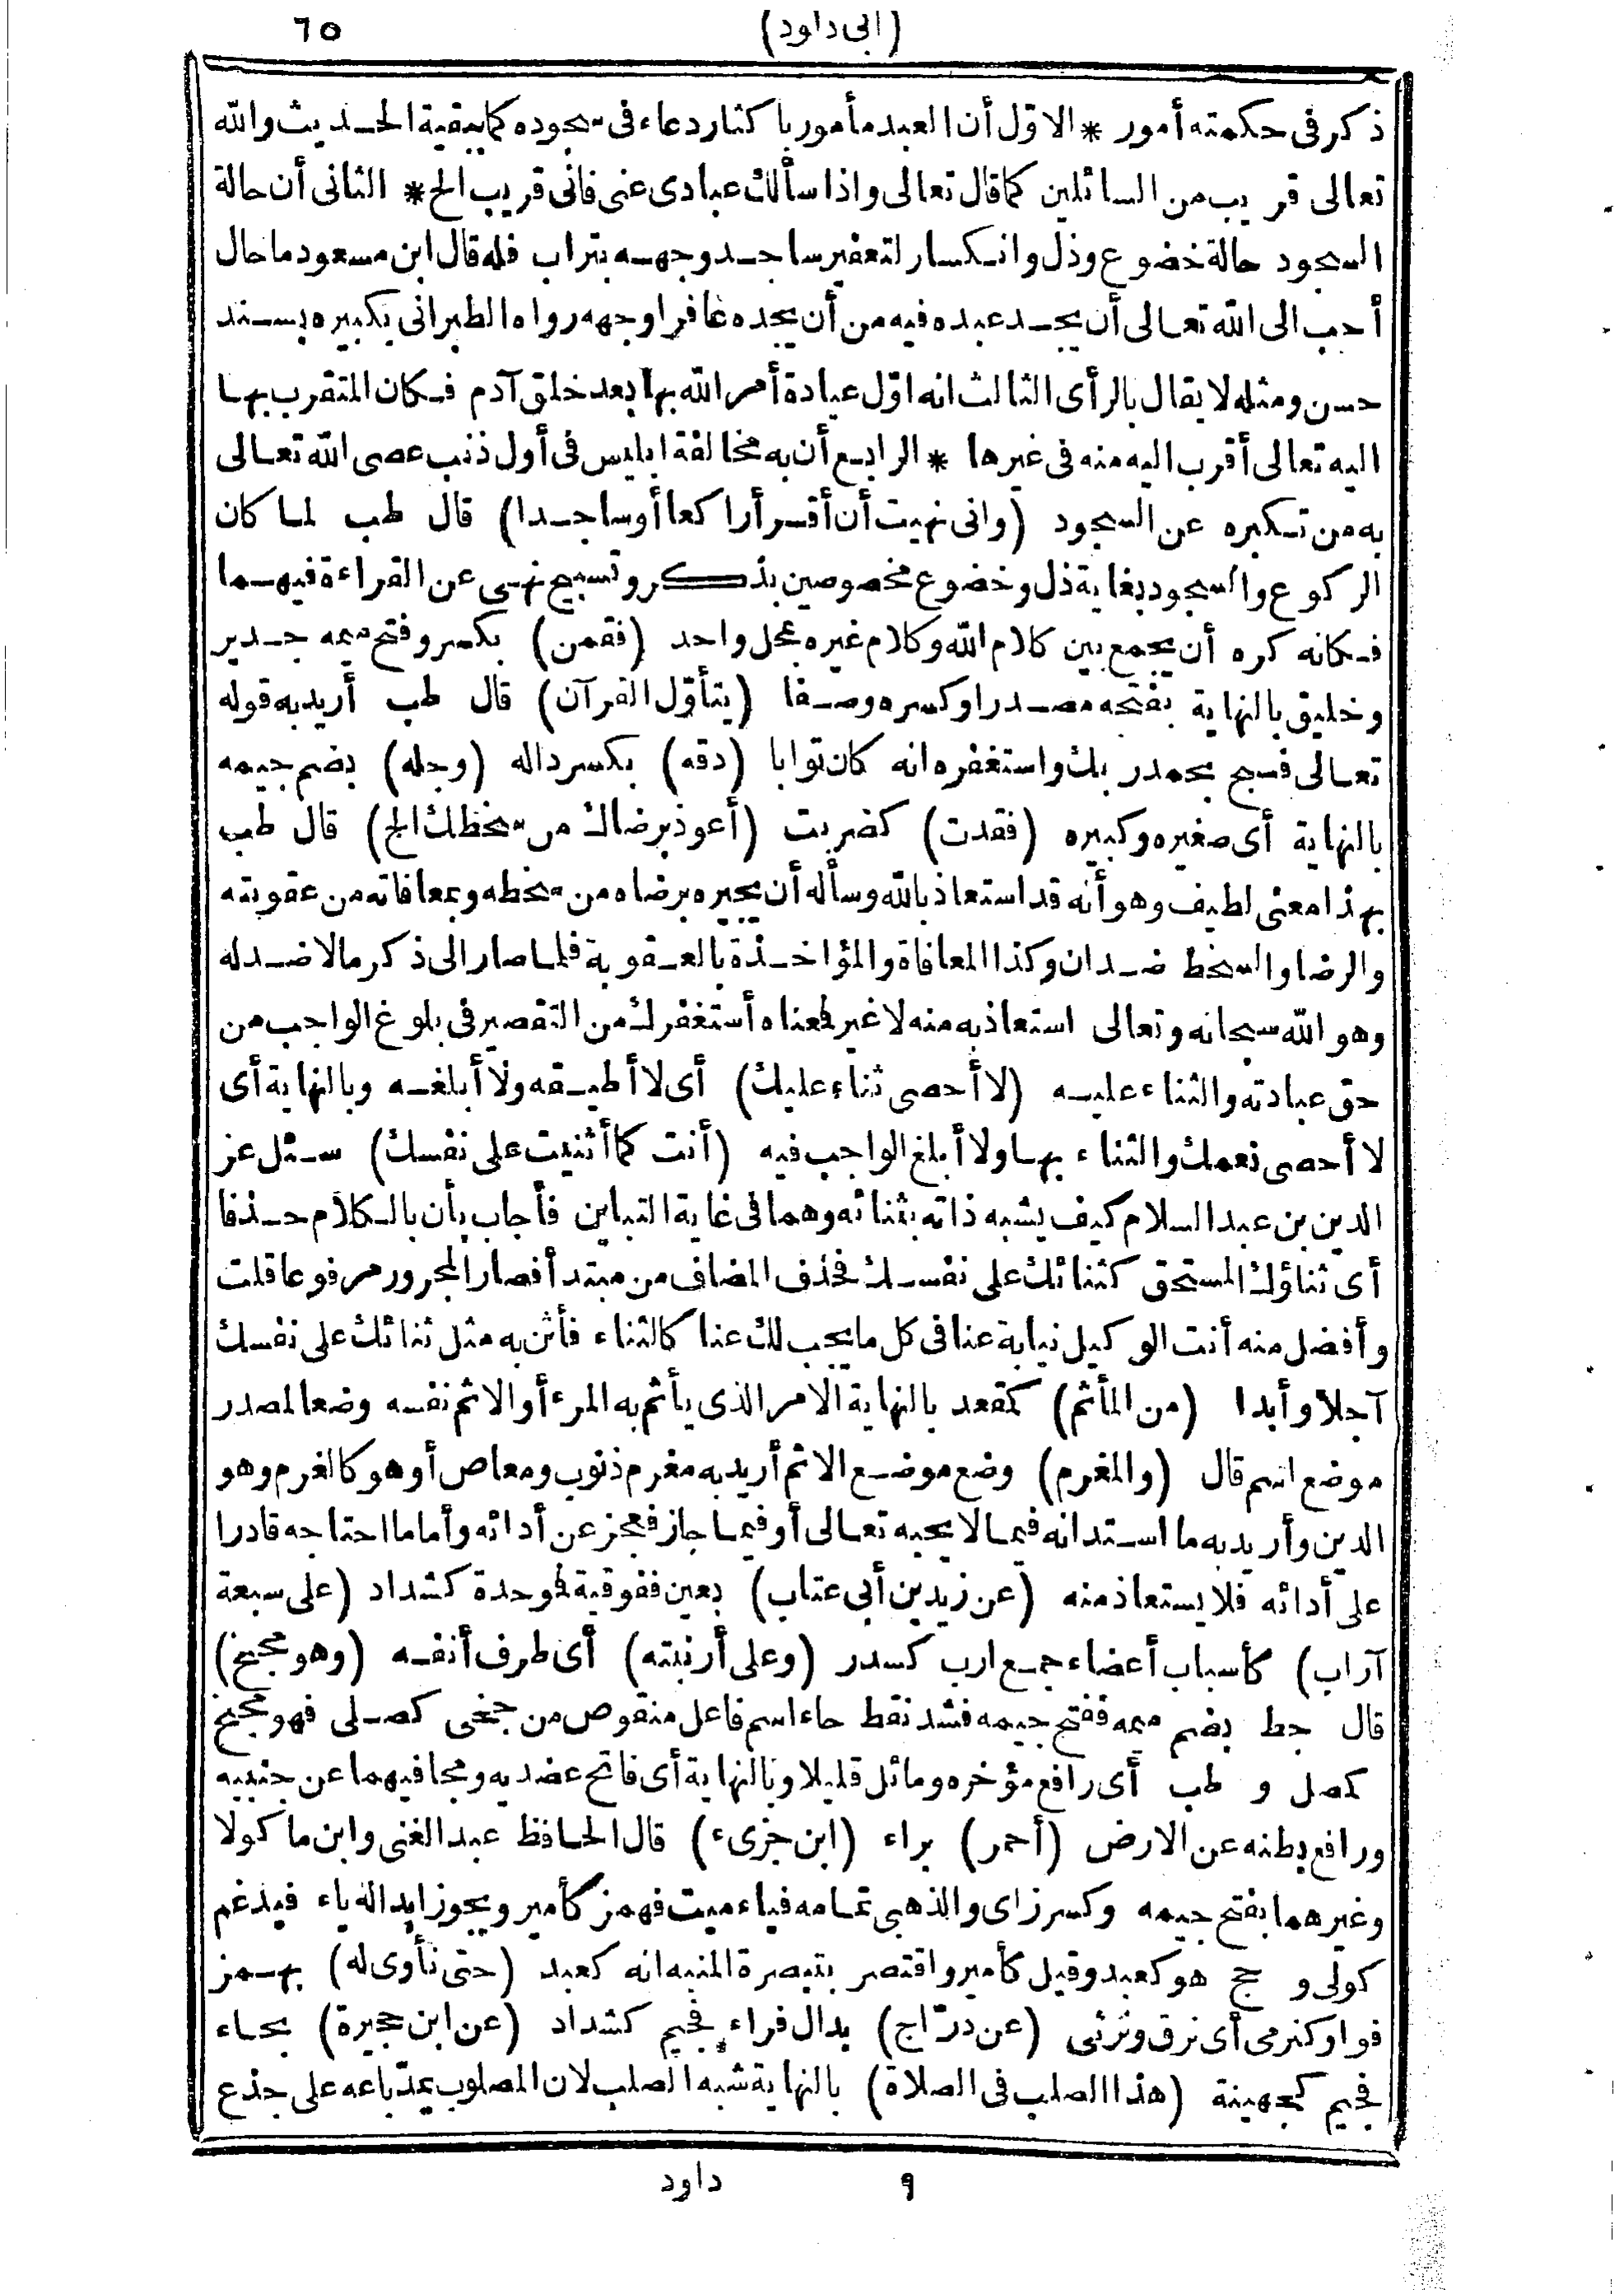 (ابى داود) ٦٥
ذكر فى حكمته أمور * الاوّل أن العبد مأمور باكثار دعاء فى سجوده كما ببقية الحديث والله
تعالى قريب من السائلين كما قال تعالى واذا سألك عبادى عنى فانى قريب الخ * الثانى أن حالة
السجود حالة خضوع وذل وانكسار لتعفير ساجد وجهه بتراب فله قال ابن مسعود ما حال
أحب الى الله تعالى أن يجد عبده فيه من أن يجده عافرا وجهه رواه الطبرانى بكبيره بسند
حسن ومثله لا يقال بالرأى الثالث انه اوّل عبادة أمر الله بها بعد خلق آدم فكان المتقرب بها
اليه تعالى أقرب اليه منه فى غيرها * الرابع أن به مخالفة ابليس فى أول ذنب عصى الله تعالى
به من تكبره عن السجود (وانى نهيت أن أقرأ راكعا أو ساجدا) قال طب لما كان
الركوع والسجود بغاية ذل وخضوع مخصوصين بذكر وتسبيح نهى عن القراءة فيهما
فكانه كره أن يجمع بين كلام الله وكلام غيره بمحل واحد (فقمن) بكسر وفتح ميمه جدير
وخليق بالنهاية بفتحه مصدرا وكسره وصفا (يتأوّل القرآن) قال طب أريد به قوله
تعالى فسبح بحمد ربك واستغفره انه كان توابا (دقه) بكسر داله (وجله) بضم جيمه
بالنهاية أى صغيره وكبيره (فقدت) كضربت (أعوذ برضاك من سخطك الخ) قال طب
بهذا معنى لطيف وهو أنه قد استعاذ بالله وسأله أن يجيره برضاه من سخطه وبمعافاته من عقوبته
والرضا والسخط ضدان وكذا المعافاة والمؤاخذة بالعقوبة فلما صار الى ذكر ما لا ضد له
وهو الله سبحانه وتعالى استعاذ به منه لا غير فمعناه أستغفرك من التقصير فى بلوغ الواجب من
حق عبادته والثناء عليه (لا أحصى ثناء عليك) أى لا أطيقه ولا أبلغه وبالنهاية أى
لا أحصى نعمك والثناء بها ولا أبلغ الواجب فيه (أنت كما أثنيت على نفسك) سئل عز
الدين بن عبد السلام كيف يشبه ذاته بثنائه وهما فى غاية التباين فأجاب بأن بالكلام حذفا
أى ثناؤك المستحق كثنائك على نفسك فحذف المضاف من مبتدأ فصار المجرور مرفوعا قلت
وأفضل منه أنت الوكيل نيابة عنا فى كل ما يجب لك عنا كالثناء فأثن به مثل ثنائك على نفسك
آجلا وأبدا (من المأثم) كمقعد بالنهاية الامر الذى يأثم به المرء أو الاثم نفسه وضعا لمصدر
موضع اسم قال (والمغرم) وضع موضع الاثم أريد به مغرم ذنوب ومعاص أو هو كالغرم وهو
الدين وأريد به ما استدانه فيما لا يحبه تعالى أو فيما جاز فعجز عن أدائه وأما ما احتاجه قادرا
على أدائه فلا يستعاذ منه (عن زيد بن أبى عتاب) بعين ففوقية فموحدة كشداد (على سبعة
آراب) كأسباب أعضاء جمع ارب كسدر (وعلى أرنبته) أى طرف أنفه (وهو مجخ)
قال جط بضم ميمه ففتح جيمه فشد نقط حاء اسم فاعل منقوص من جخى كصلى فهو مجخ
كمصل و طب أى رافع مؤخره ومائل قليلا وبالنهاية أى فاتح عضديه ومجافيهما عن جنبيه
ورافع بطنه عن الارض (أحمر) براء (ابن جزىء) قال الحافظ عبد الغنى وابن ماكولا
وغيرهما بفتح جيمه وكسر زاى والذهبى تمامه فياء ميت فهمز كأمير ويجوز ابداله ياء فيدغم
كولى و حج هو كعبد وقيل كأمير واقتصر بتبصرة المنبه انه كعبد (حتى نأوى له) بهمز
فواو كنرمى أى نرق ونرثى (عن درّاج) بدال فراء فجيم كشداد (عن ابن حجيرة) بحاء
فجيم كجهينة (هذا الصلب فى الصلاة) بالنهاية شبه الصلب لان المصلوب يمدّ باعه على جذع
٩ داود